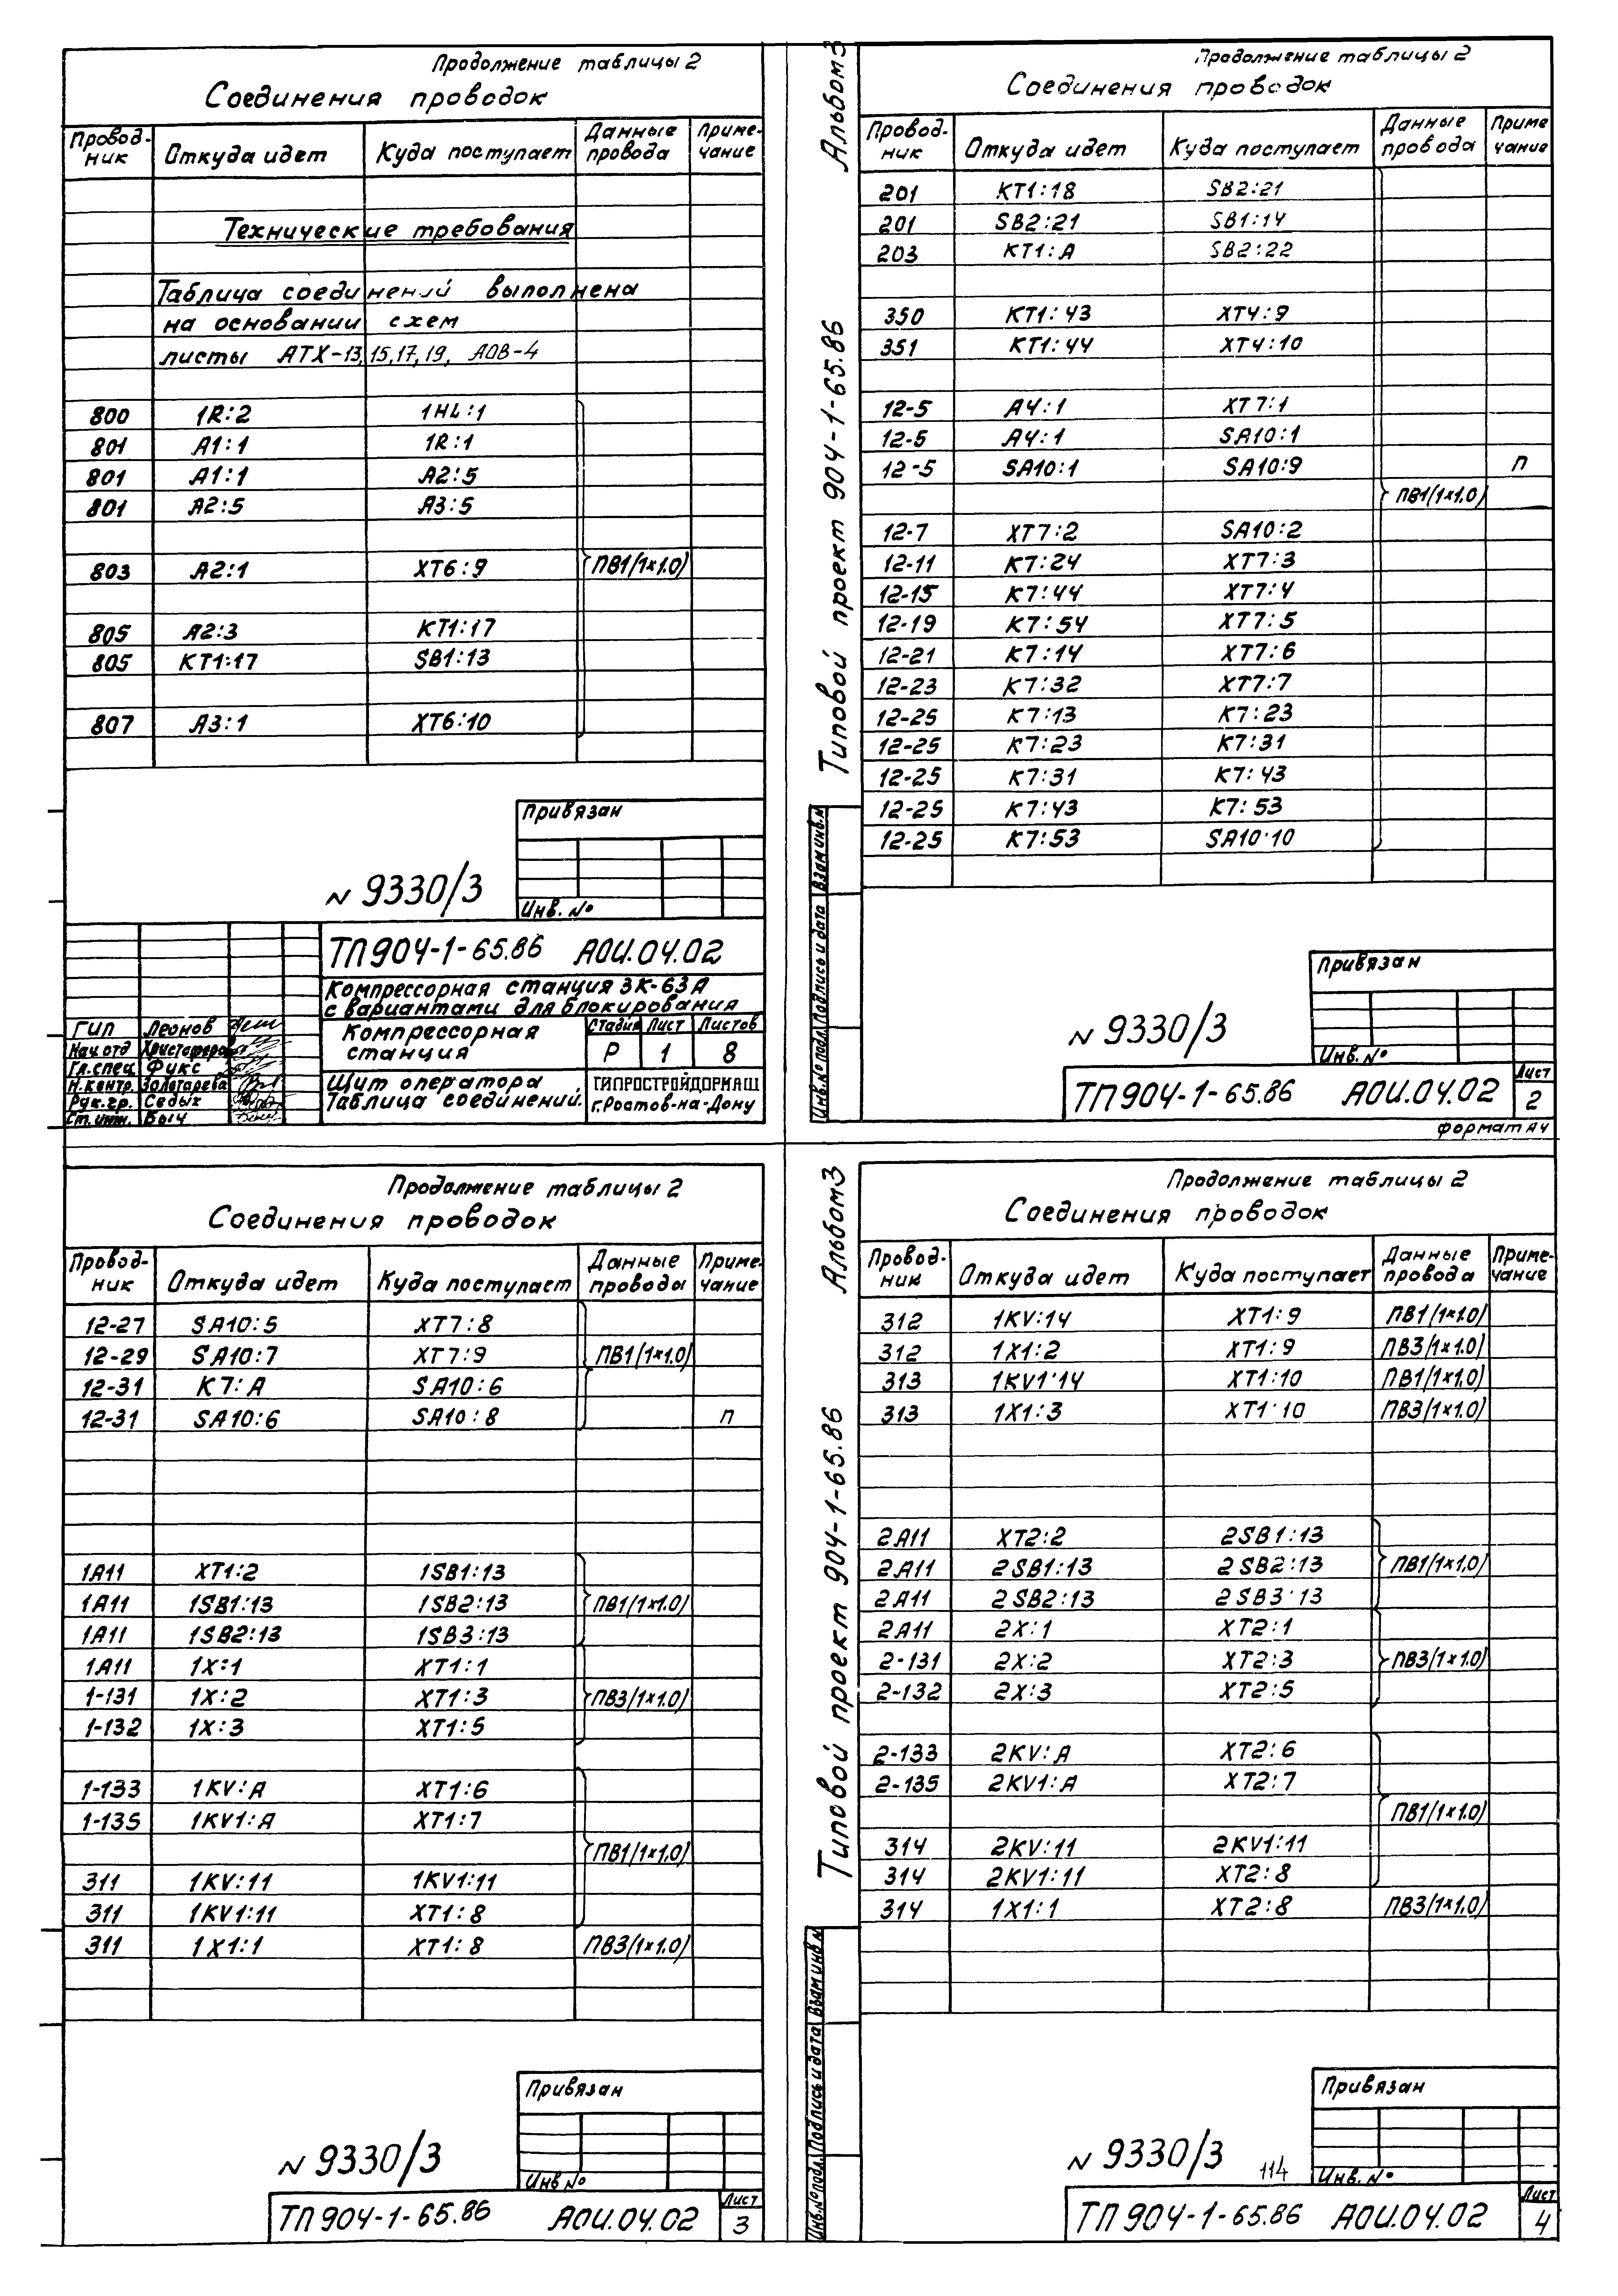 Продолжение таблицы 2
Соединения проводок
Провод-ник Откуда идет Куда поступает Данные провода Приме-чание
Технические требования
Таблица соединений выполнена
на основании схем
листы АТХ-13, 15, 17, 19, АОВ-4
800 1R:2 1HL:1
801 A1:1 1R:1
801 A1:1 A2:5
801 A2:5 A3:5
803 A2:1 XT6:9 ПВ1(1×1.0)
805 A2:3 KT1:17
805 KT1:17 SB1:13
807 A3:1 XT6:10
Привязан
N 9330/3
Инв. №
ТП 904-1-65.86 АОИ.04.02
Компрессорная станция 3К-63А
с вариантами для блокирования
ГИП Леонов
Нач. отд
Гл. спец. Фукс
Н. контр. Золотарева
Рук. гр. Седых
Ст. инж. Быч
Компрессорная
станция
Стадия Лист Листов
Р 1 8
Щит оператора
Таблица соединений.
ГИПРОСТРОЙДОРМАШ
г. Ростов-на-Дону
Альбом 3
Типовой проект 904-1-65.86
Инв. № подл. Подпись и дата Взам инв. №
Продолжение таблицы 2
Соединения проводок
Провод-ник Откуда идет Куда поступает Данные провода Приме чание
201 KT1:18 SB2:21
201 SB2:21 SB1:14
203 KT1:A SB2:22
350 KT1:43 XT4:9
351 KT1:44 XT4:10
12-5 A4:1 XT7:1
12-5 A4:1 SA10:1
12-5 SA10:1 SA10:9 п
ПВ1(1×1.0)
12-7 XT7:2 SA10:2
12-11 K7:24 XT7:3
12-15 K7:44 XT7:4
12-19 K7:54 XT7:5
12-21 K7:14 XT7:6
12-23 K7:32 XT7:7
12-25 K7:13 K7:23
12-25 K7:23 K7:31
12-25 K7:31 K7:43
12-25 K7:43 K7:53
12-25 K7:53 SA10:10
Привязан
N 9330/3
Инв. №
ТП 904-1-65.86 АОИ.04.02
Лист
2
формат А4
Продолжение таблицы 2
Соединения проводок
Провод-ник Откуда идет Куда поступает Данные проводы Приме-чание
12-27 SA10:5 XT7:8
12-29 SA10:7 XT7:9 ПВ1(1×1.0)
12-31 K7:A SA10:6
12-31 SA10:6 SA10:8 п
1A11 XT1:2 1SB1:13
1A11 1SB1:13 1SB2:13 ПВ1(1×1.0)
1A11 1SB2:13 1SB3:13
1A11 1X:1 XT1:1
1-131 1X:2 XT1:3 ПВ3(1×1.0)
1-132 1X:3 XT1:5
1-133 1KV:A XT1:6
1-135 1KV1:A XT1:7
ПВ1(1×1.0)
311 1KV:11 1KV1:11
311 1KV1:11 XT1:8
311 1X1:1 XT1:8 ПВ3(1×1.0)
Привязан
N 9330/3
Инв №
ТП 904-1-65.86 АОИ.04.02
Лист
3
Альбом 3
Типовой проект 904-1-65.86
Инв. № подл. Подпись и дата Взам инв №
Продолжение таблицы 2
Соединения проводок
Провод-ник Откуда идет Куда поступает Данные провода Приме-чание
312 1KV:14 XT1:9 ПВ1(1×1.0)
312 1X1:2 XT1:9 ПВ3(1×1.0)
313 1KV1:14 XT1:10 ПВ1(1×1.0)
313 1X1:3 XT1:10 ПВ3(1×1.0)
2A11 XT2:2 2SB1:13
2A11 2SB1:13 2SB2:13 ПВ1(1×1.0)
2A11 2SB2:13 2SB3:13
2A11 2X:1 XT2:1
2-131 2X:2 XT2:3 ПВ3(1×1.0)
2-132 2X:3 XT2:5
2-133 2KV:A XT2:6
2-135 2KV1:A XT2:7
ПВ1(1×1.0)
314 2KV:11 2KV1:11
314 2KV1:11 XT2:8
314 1X1:1 XT2:8 ПВ3(1×1.0)
Привязан
N 9330/3
114
Инв. №
ТП 904-1-65.86 АОИ.04.02
Лист
4